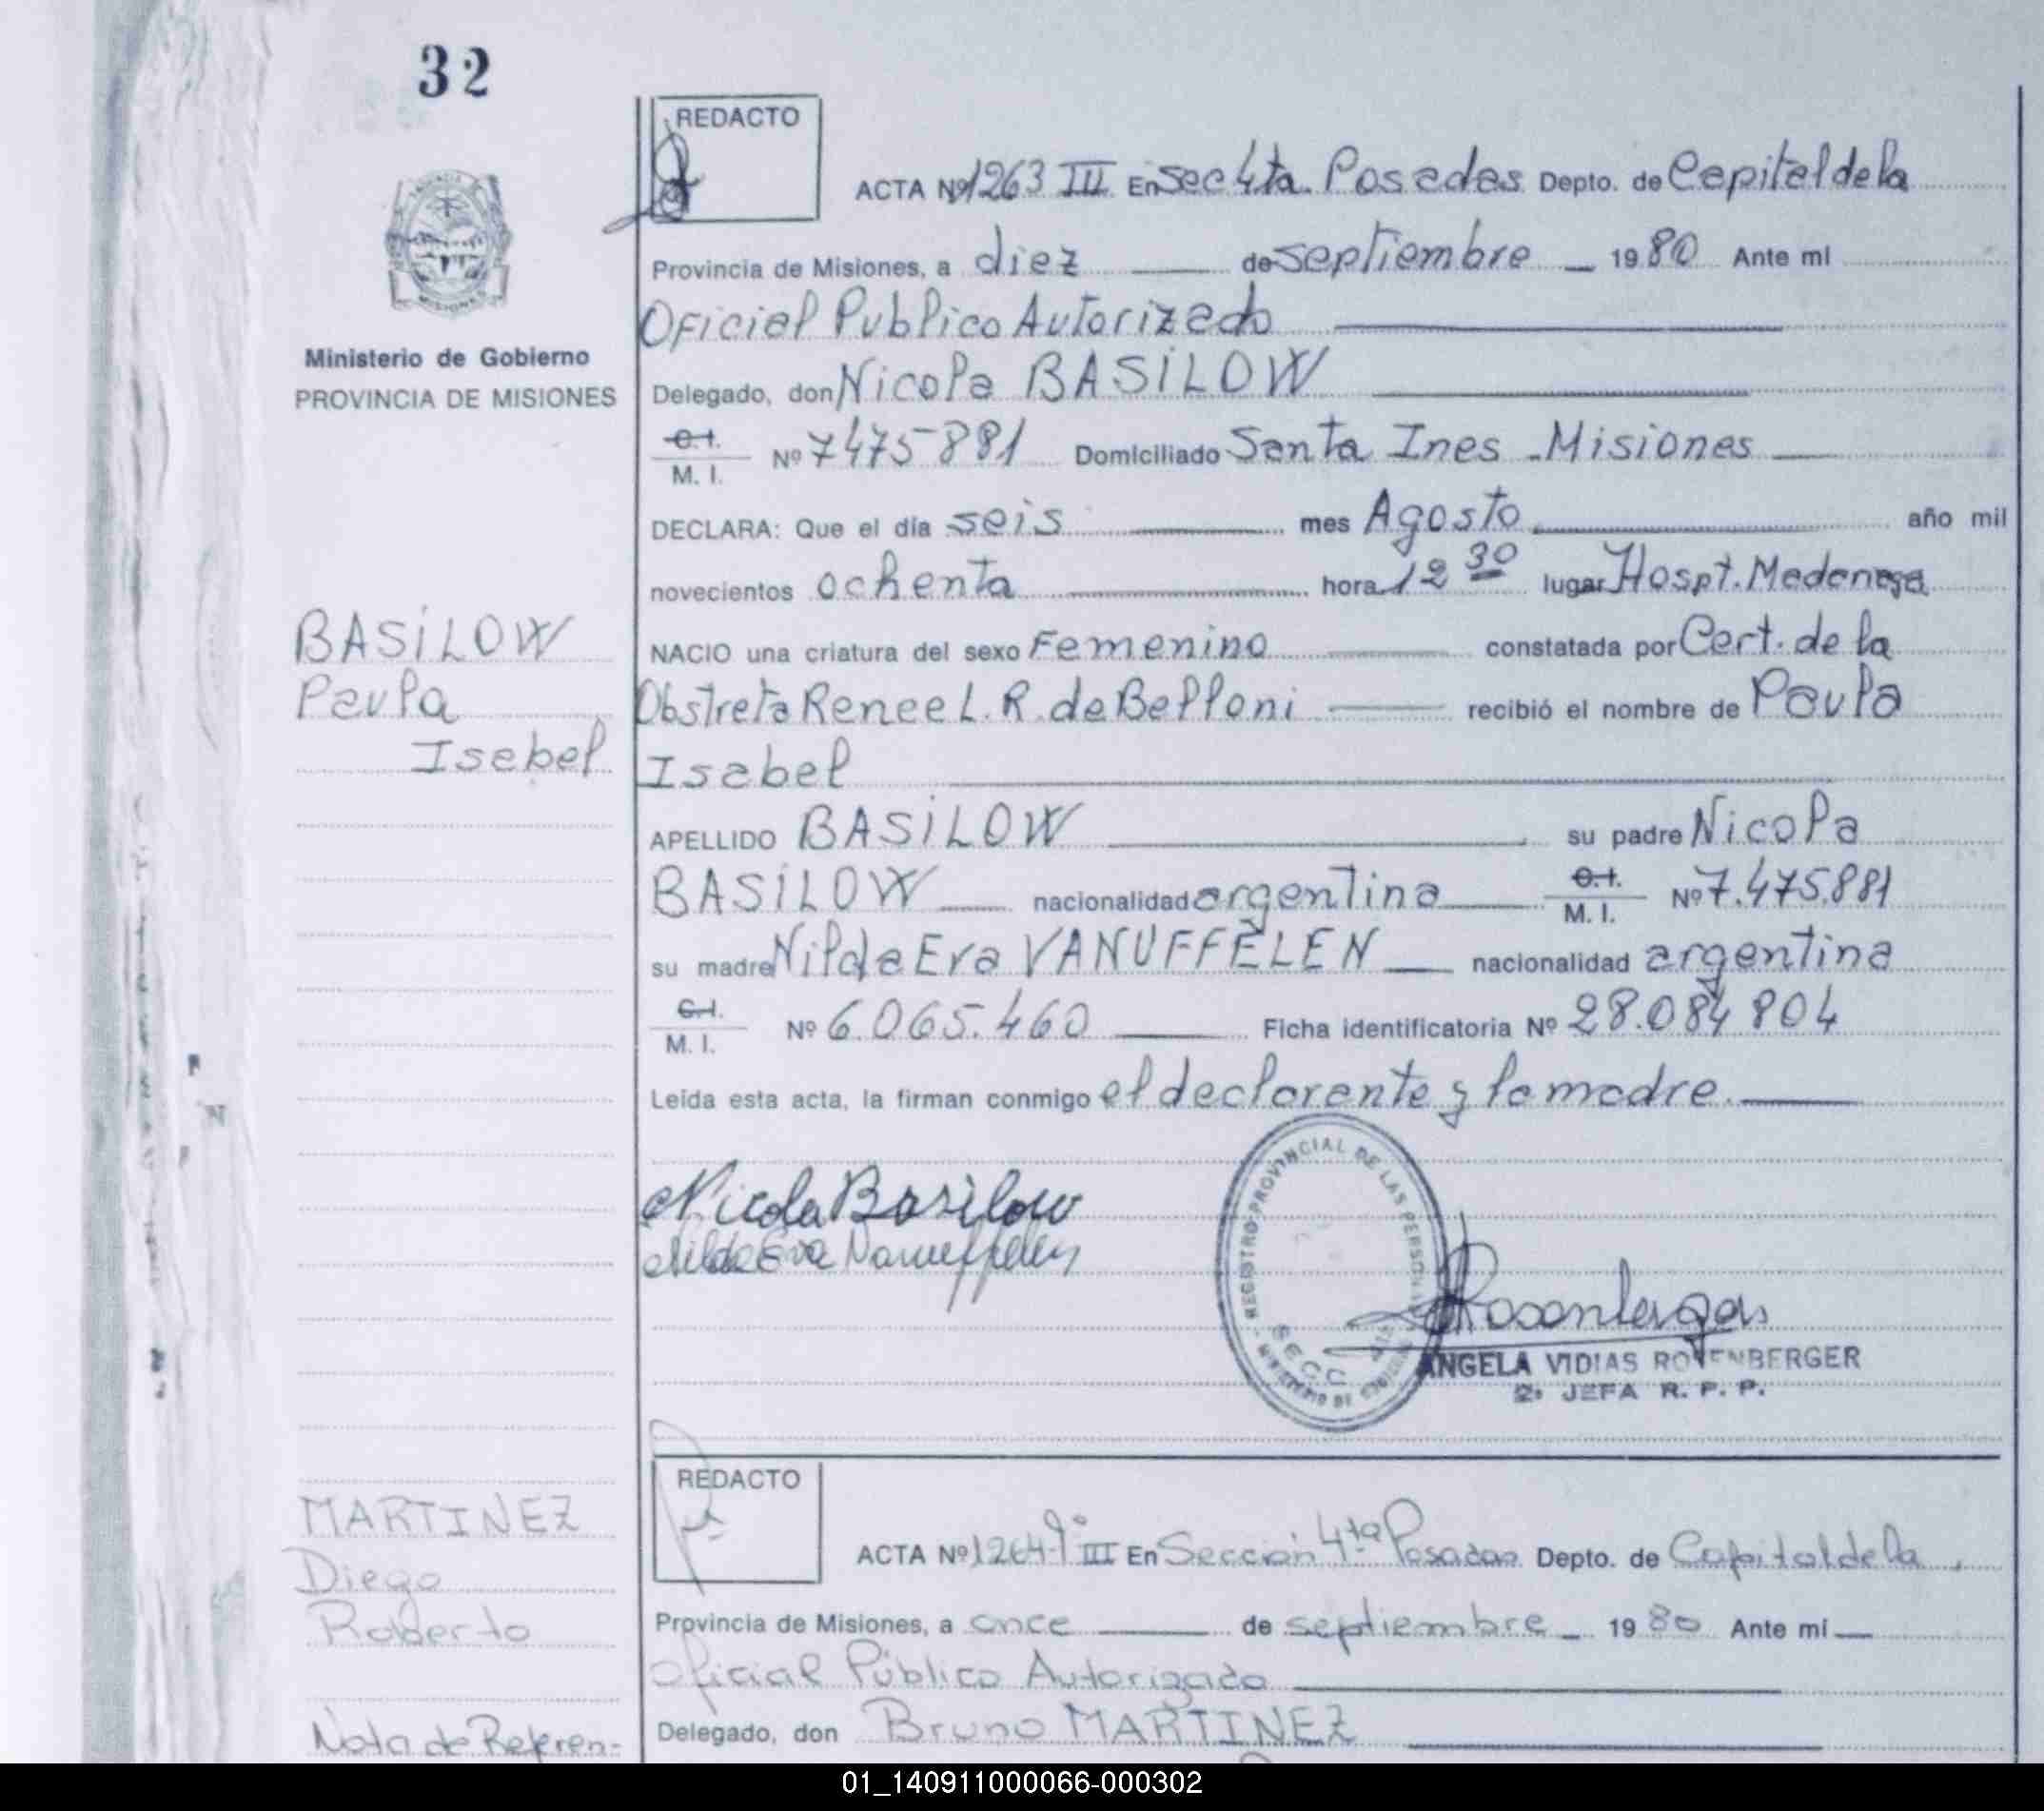 32
REDACTO
ACTA Nº 1263 III En Sec 4ta. Posadas Depto. de Capital de la
Provincia de Misiones, a diez de septiembre 1980 Ante mi
Oficial Publico Autorizado
Ministerio de Gobierno
PROVINCIA DE MISIONES
Delegado, don Nicola BASILOW
C.I.
M. I. Nº 7475881 Domiciliado Santa Ines - Misiones
DECLARA: Que el día seis mes Agosto año mil
novecientos ochenta hora 12 30 lugar Hospt.
BASILOW
Paula
Isabel
NACIO una criatura del sexo Femenino constatada por Cert. de la
Obstreta Renee L. R. de Belloni recibió el nombre de Paula
Isabel
APELLIDO BASILOW su padre Nicola
BASILOW nacionalidad argentina C.I.
M. I. Nº 7.475.881
su madre Nilda Eva VANUFFELEN nacionalidad argentina
C.I.
M. I. Nº 6.065.460 Ficha identificatoria Nº 28.084804
Leída esta acta, la firman conmigo el declarante y la madre.
Nicola Basilow
Nilda Eva Vanuffelen
REGISTRO PROVINCIAL DE LAS PERSONAS
SECC
Rosenberger
ANGELA VIDIAS ROSENBERGER
2º JEFA R. P. P.
REDACTO
MARTINEZ
Diego
Roberto
ACTA Nº 1264 III En Sección 4ta Posadas Depto. de Capital de la
Provincia de Misiones, a once de septiembre 1980 Ante mi
Oficial Público Autorizado
Nota de Referen-
Delegado, don Bruno MARTINEZ
01_140911000066-000302